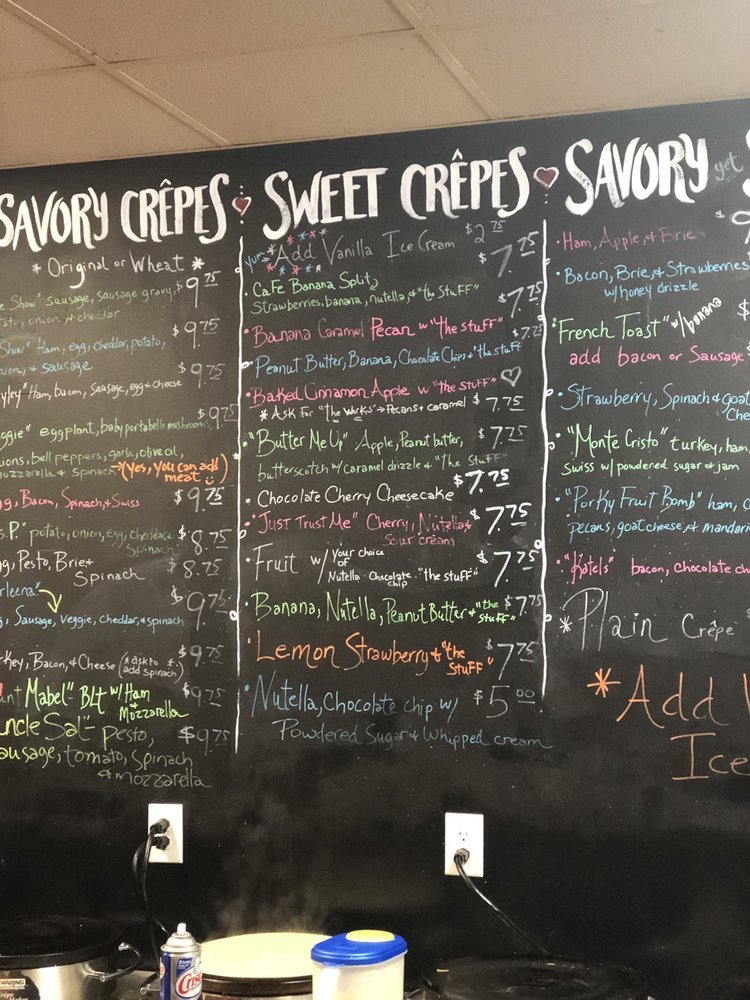 SAVORY CRÊPES
* Original or Wheat *
Show" Sausage, Sausage gravy, $9.75
onion, & cheddar
Show" Ham, egg, cheddar, potato, $9.75
& sausage
Ham, bacon, Sausage, egg & cheese $9.75
eggplant, baby portabello mushrooms, $9.75
bell peppers, garlic, olive oil,
& Spinach → (yes, you can add
meat)
Bacon, Spinach & Swiss $9.75
potato, onion, egg, cheddar, & $8.75
Spinach
Pesto, Brie & $8.75
Spinach
$9.75
Sausage, Veggie, cheddar, & spinach
Bacon, & Cheese (*ask to * $9.75
add spinach)
Mabel" BLT w/ Ham $9.75
& Mozzarella
Sal" pesto, $9.75
sausage, tomato, Spinach
& mozzarella
SWEET CRÊPES
Yum * Add Vanilla Ice Cream $2.75
• Cafe Banana Split $7.75
Strawberries, banana, nutella, & "the Stuff"
• Banana Caramel Pecan w "the stuff" $7.75
• Peanut Butter, Banana, Chocolate Chips & "the stuff" $7.75
• Baked Cinnamon Apple w "the Stuff"
* Ask For "the Works" → Pecans & caramel $7.75
• "Butter Me Up" Apple, Peanut butter, $7.75
butterscotch w/ caramel drizzle & "the Stuff"
• Chocolate Cherry Cheesecake $7.75
• "Just Trust Me" Cherry, Nutella & $7.75
Sour cream
• Fruit w/ Your choice of $7.75
Nutella • Chocolate chip • "the stuff"
• Banana, Nutella, Peanut Butter & "the stuff" $7.75
• Lemon Strawberry & "the Stuff" $7.75
• Nutella, Chocolate chip w/ $5.00
Powdered Sugar & Whipped cream
SAVORY get
• Ham, Apple, & Brie
• Bacon, Brie, & Strawberries
w/ honey drizzle
• "French Toast" w/ banana
add bacon or Sausage
• Strawberry, Spinach & goat
• "Monte Cristo" turkey, ham,
Swiss w/ powdered sugar & jam
• "Porky Fruit Bomb" ham,
pecans, goat cheese, &
• "Katels" bacon, chocolate
* Plain Crêpe
* Add
Ice
WARNING